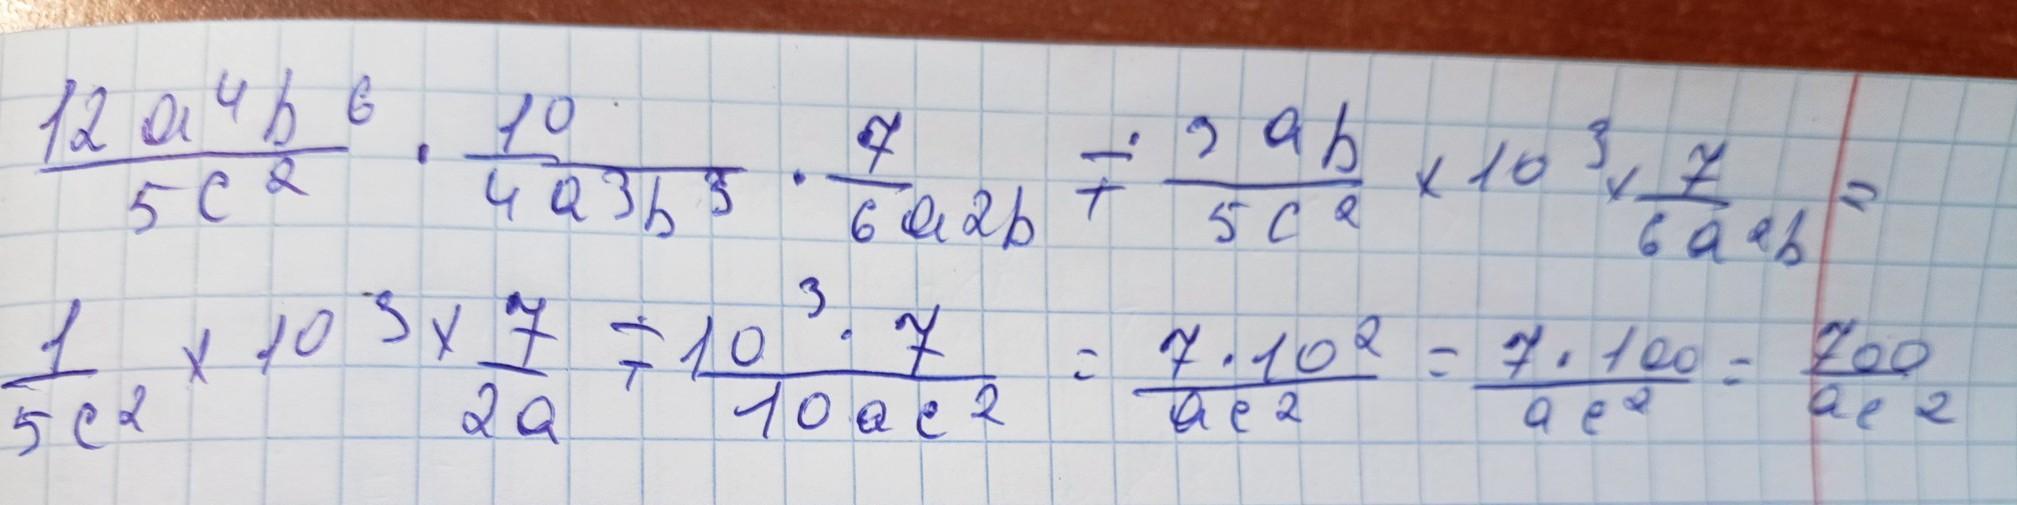 12a⁴b⁶/5c² · 10/4a3b3 · 7/6a2b ÷ 3ab/5c² × 10³ × 7/6a2b =
1/5c² × 10³ × 7/2a ÷ 10³·7/10ac² = 7·10²/ac² = 7·100/ac² = 700/ac²